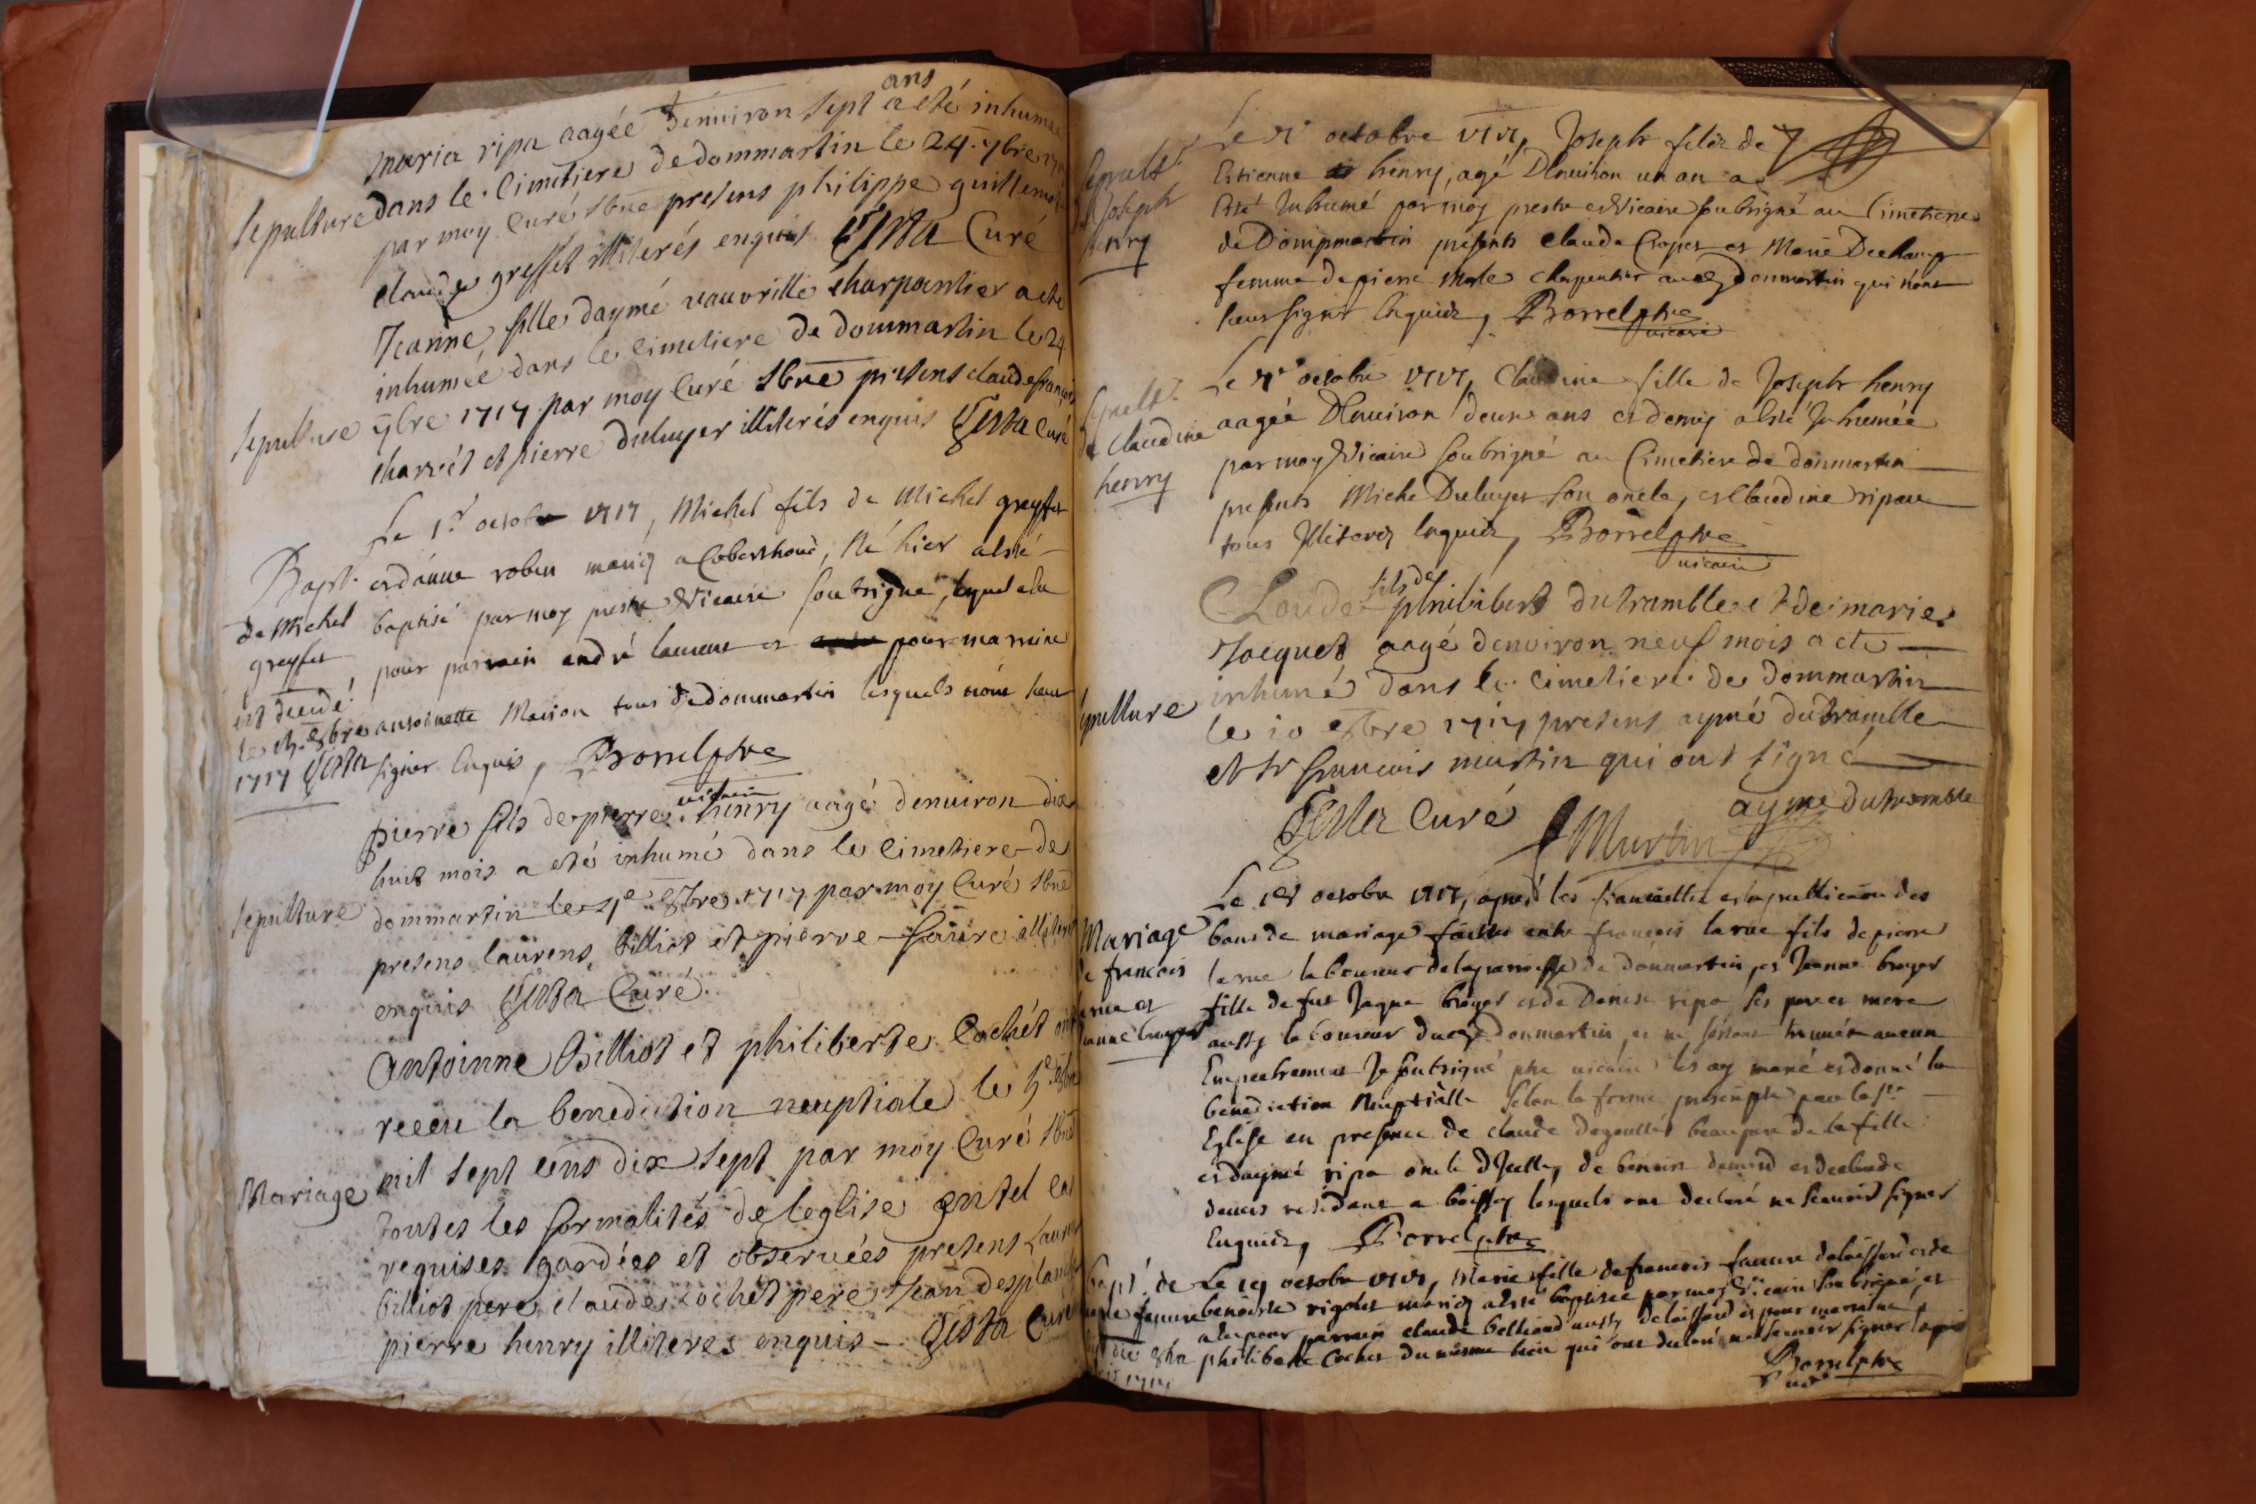 maria ripa aagée denuiron sept ans a eté inhumée
Sepulture dans le Cimetiere de dommartin le 24 7bre
par moy Curé sbne presens philippe guillemot
claude greffet illiterés enquis Gista Curé
Jeanne fille daymé vauvrille charpantier a eté
inhumée dans le cimetiere de dommartin le 24
Sepulture 7bre 1717 par moy Curé sbne presens claude françois
charvét et pierre duluyer illiterés enquis Gista Curé
Le 1r octobre 1717, Michel fils de Michel greffet
Bapt. et danne robin mariés a Coberthoud, Né hier a esté
de Michel baptisé par moy prestre & Vicaire soubsigné, lequel a eu
greyfet pour parrain andré laurent et pour marraine
est decedé
le 8bre antoinette Maison tous de dommartin lesquels n'ont sceu
1717 Gista signer Enquis, Borrel ptre
vicaire
pierre fils de pierre henry aagé denuiron dix
huit mois a eté inhumé dans le cimetiere de
Sepulture dommartin le 4e 8bre 1717 par moy Curé sbne
presens laurens billiot et pierre faure
enquis Gista Curé
Antoinne Billiot et philiberte Cochét ont
receu la benediction neuptiale le 5e 8bre
mil sept cens dix sept par moy Curé sbne
Mariage toutes les formalités de leglise en tel cas
requises gardées et obseruées presens Laurens
billiot pere, claude cochét pere, Jean desplanches
pierre henry illiteres enquis Gista Curé
Le 7e octobre 1717, Joseph filz de
Sepult. Estienne henry, agé D'enuiron un an a
Joseph Esté Inhumé par moy prestre & Vicaire soubsigné au Cimetiere
henry de Dompmartin presents Claude Copet et Marie Deschamps
femme de pierre Morle charpentier dommartin qui n'ont
sceu signer Enquis, Borrel ptre
vicaire
Le 7e octobre 1717, Claudine fille de Joseph henry
Sepult. aagée D'enuiron deux ans et demy a esté Inhumée
de Claudine par moy & Vicaire soubsigné au Cimetiere de dommartin
henry presents Michel Duluyer son oncle, et Claudine ripaux
tous Illiterés Enquis, Borrel ptre
vicaire
Claude fils de philibert dutramble et de marie
Jacquet aagé denuiron neuf mois a eté
inhumé dans le cimetiere de dommartin
Sepulture le 10 8bre 1717 presens aymé dutramble
et sr francois martin qui ont signé
Gista Curé Martin ayme dutramble
Le octobre 1717, aprés les fiancailles et la publication des
Mariage bans de mariage faittes entre francois larue fils de pierre
de francois larue laboureur de la parroisse de dommartin, et Jeanne broyer
larue et fille de fut Jaque broyer et de Denise ripa ses pere et mere
Jeanne broyer aussy laboureur dommartin, et ne s'estant trouvé aucun
Empechement Je soubsigné ptre vicaire les ay marié et donné la
benediction Nuptialle selon la forme prescripte par la ste
Eglise en presence de claude degoullet beaupere de la fille
et daymé ripa oncle d'Icelle, de benoist et de claude
residant a boissey lesquels ont declaré ne scauoir signer
Enquis, Borrel ptre
Bapt. de Le 19 octobre 1717, Marie fille de francois faure et de
faure benoiste rigolet mariés a esté baptisée par moy Vicaire soubsigné, et
a eu pour parrain claude belliand aussy et pour marraine
philiberte Cochet du mesme lieu qui ont declaré ne scauoir signer
Borrel ptre